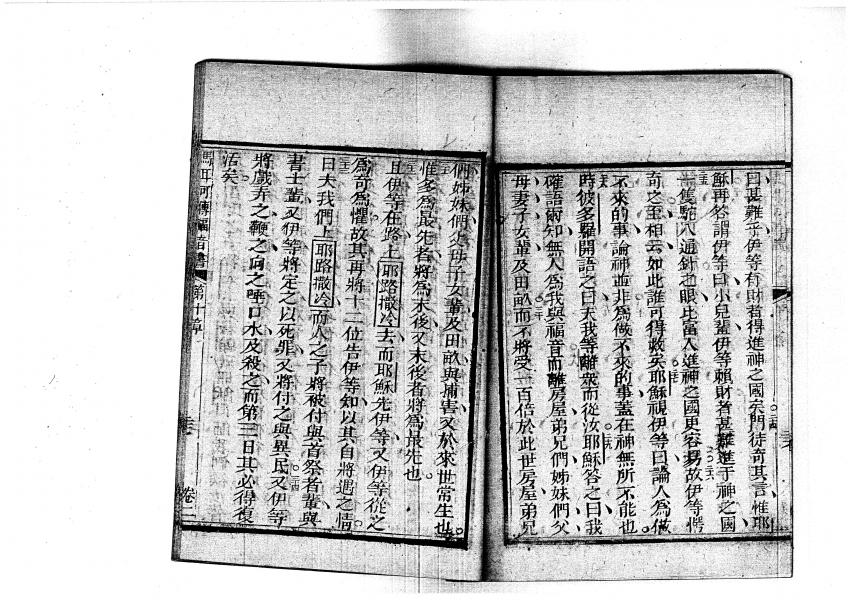 曰甚難乎伊等有財者得進神之國矣門徒奇其言惟耶
穌再答謂伊等曰小兒輩伊等賴財者甚難進于神之國
一隻駝入通針之眼比富人進神之國更容易故伊等愕
奇之至相云如此誰可得救矣耶穌視伊等曰論人爲做
不來的事論神並非爲做不來的事蓋在神無所不能也
時彼多羅開語之曰夫我等離衆而從汝耶穌答之曰我
確語爾知無人爲我與福音而離房屋弟兄們姊妹們父
母妻子女輩及田畝而不將受一百倍於此世房屋弟兄
們姊妹們父母子女輩及田畝與捕害又於來世常生也
惟多爲最先者將爲末後又末後者將爲最先也
且伊等在路上耶路撒冷去而耶穌先伊等又伊等從之
爲奇爲懼故其再將十二位告伊等知以其自將遇之情
曰夫我們上耶路撒冷而人之子將被付與首祭者輩與
書士輩又伊等將定之以死罪又將付之與異民又伊等
將戲弄之鞭之向之唾口水及殺之而第三日其必得復
活矣
馬耳可傳福音書 第十章 卷二